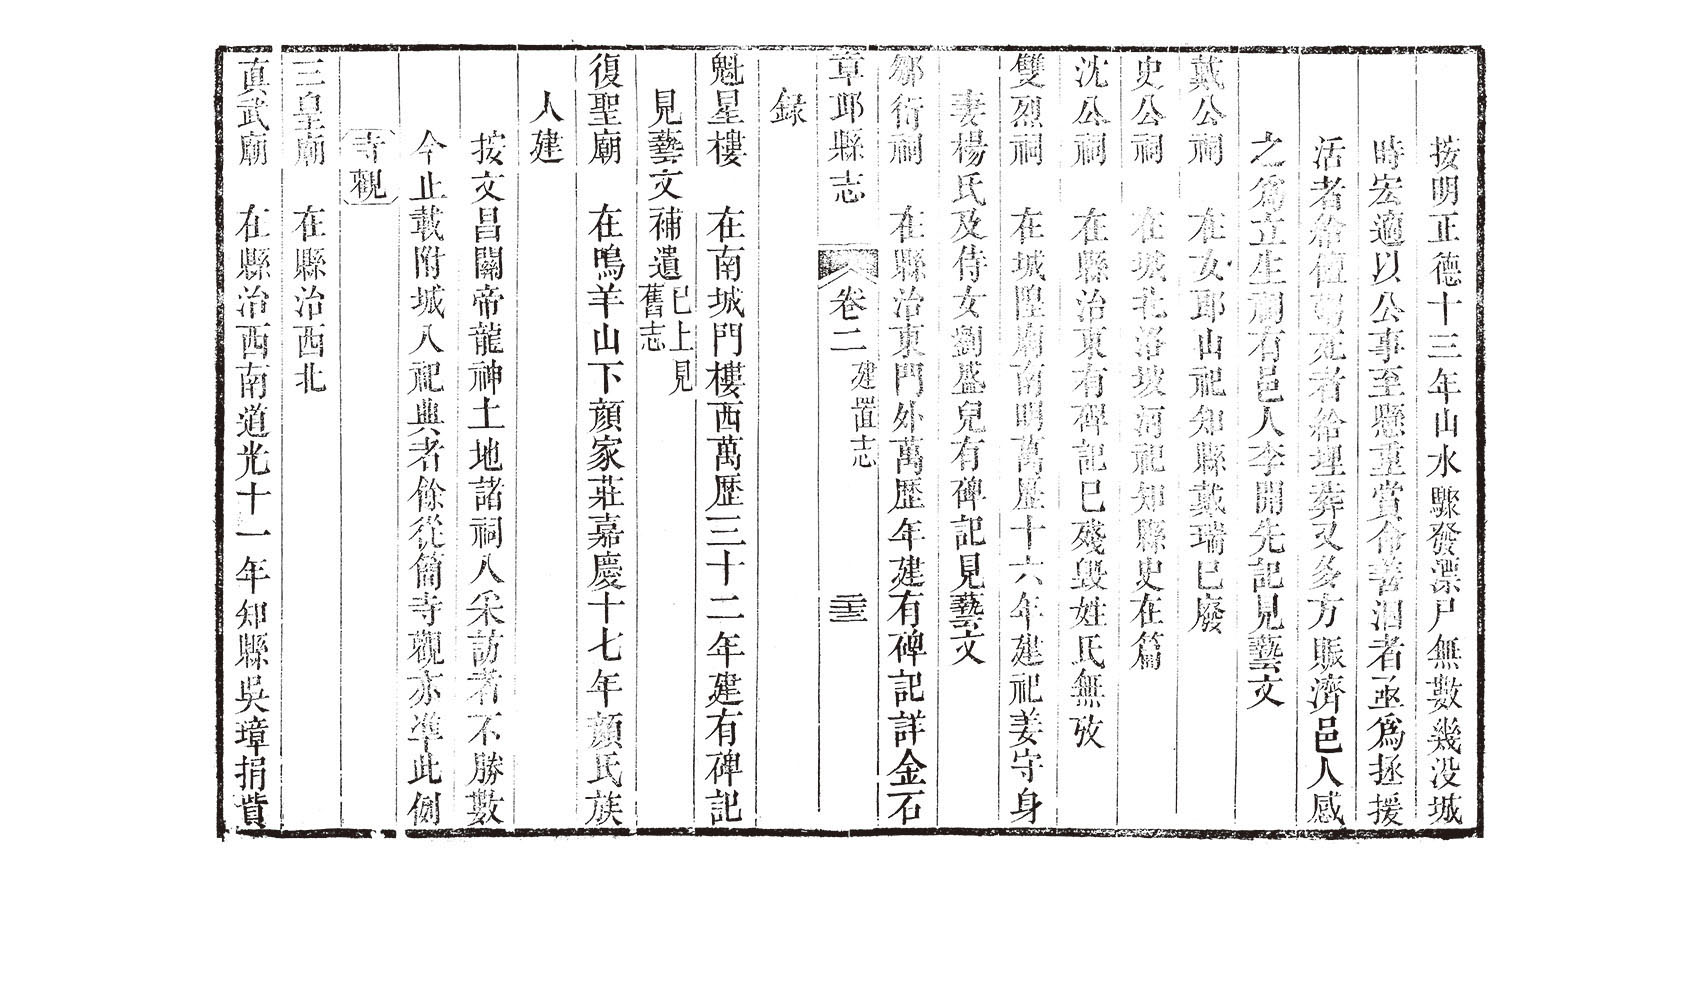 按明正德十三年山水驟發漂尸無數幾没城
時宏適以公事至懸重賞命善泅者亟爲拯援
活者給值 死者給埋葬又多方賑濟邑人感
之爲立生祠有邑人李開先記見藝文
戴公祠 在女郎山祀知縣戴瑞已廢
史公祠 在城北洛坡河祀知縣史在篇
沈公祠 在縣治東有碑記已殘毁姓氏無攷
雙烈祠 在城隍廟南明萬歷十六年建祀姜守身
妻楊氏及侍女劉盛兒有碑記見藝文
鄒衍祠 在縣治東門外萬歷年建有碑記詳金石
章邱縣志 卷二 建置志 二十三
録
魁星樓 在南城門樓西萬歷三十二年建有碑記
見藝文補遺已上見舊志
復聖廟 在鳴羊山下顏家莊嘉慶十七年顏氏族
人建
按文昌關帝龍神土地諸祠入采訪者不勝數
今止載附城入祀典者餘從簡寺觀亦準此例
寺觀
三皇廟 在縣治西北
真武廟 在縣治西南道光十一年知縣吳璋捐貲